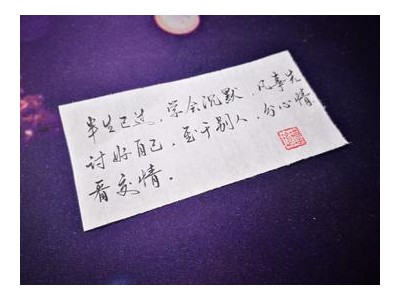 半生已过，学会沉默，凡事先
讨好自己，至于别人，分心情，
看交情。